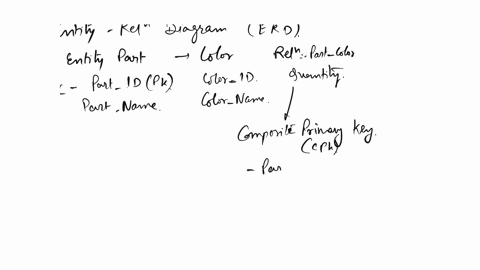 ntity - Relⁿ Diagram (ERD)
Entity Part → Color Relⁿ:- Part_Color
:- Part_ID (Pk) Color_ID. Quantity.
Part_Name. Color_Name.
Composite Primary Key.
(CPk)
- Par